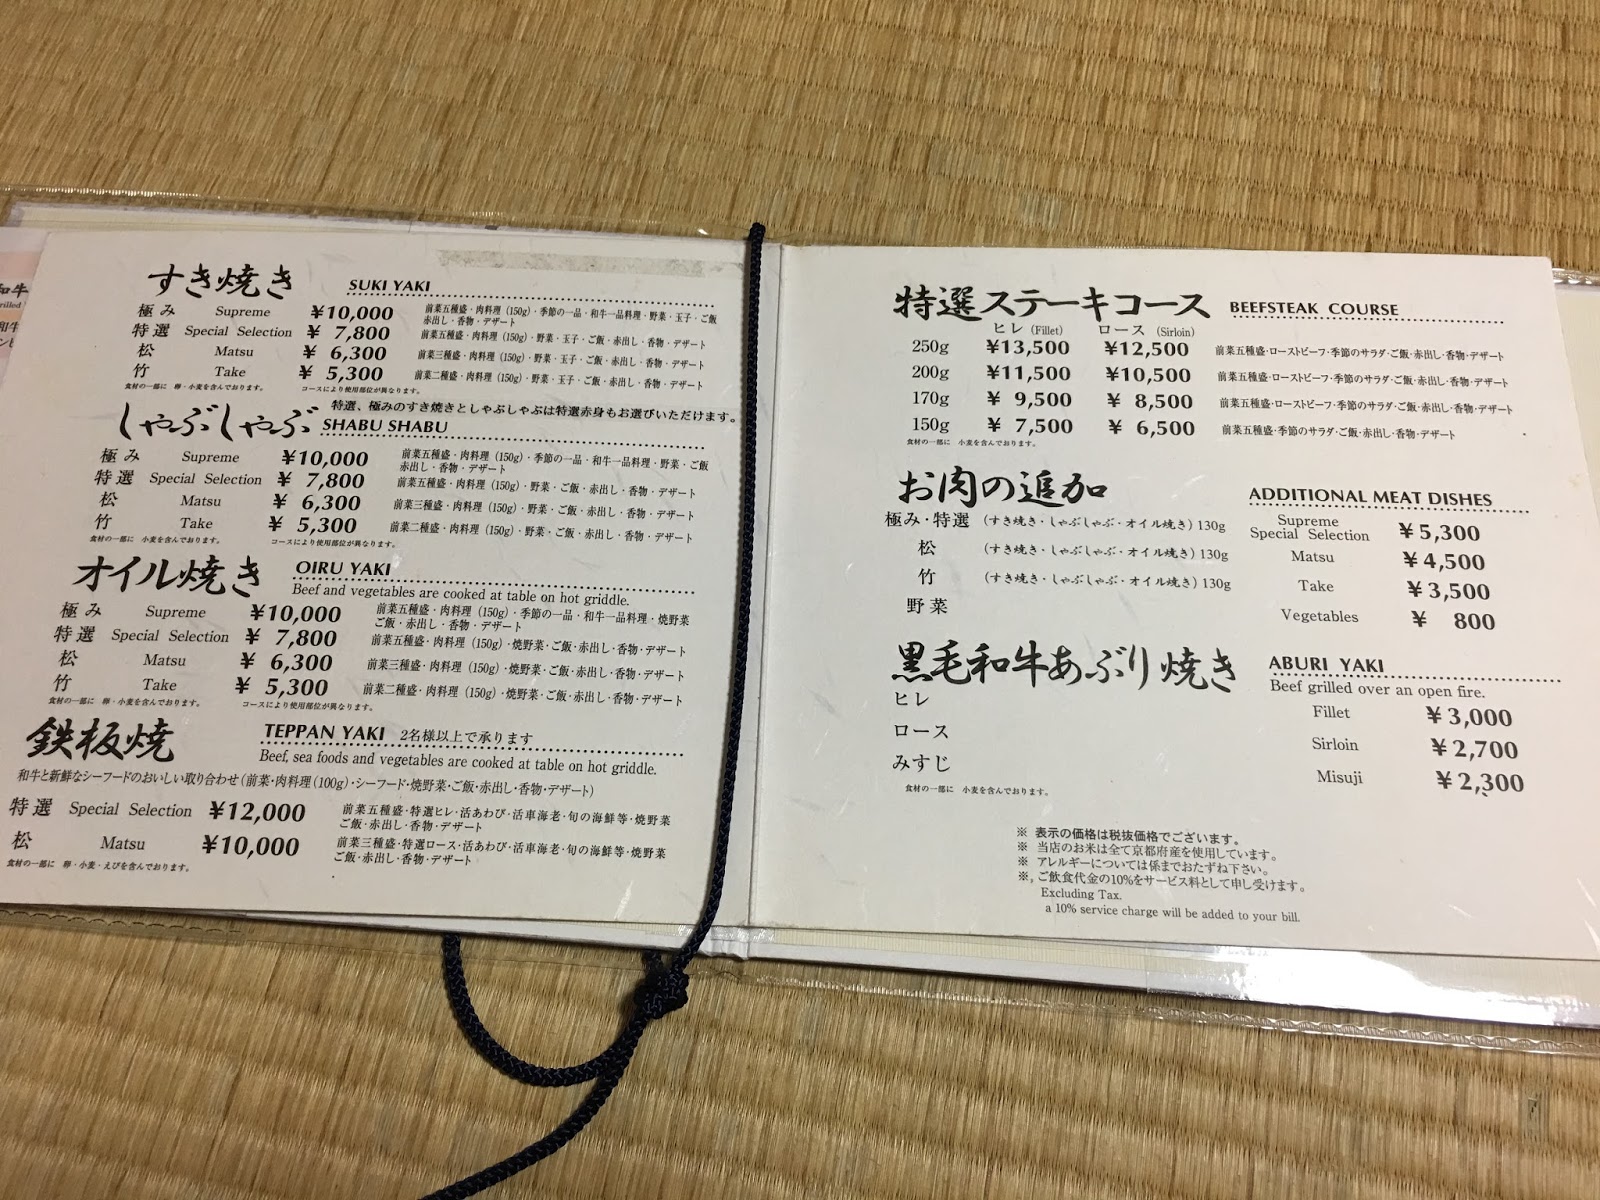 すき焼き SUKI YAKI
極み Supreme ¥10,000 前菜五種盛・肉料理(150g)・季節の一品・和牛一品料理・野菜・玉子・ご飯
赤出し・香物・デザート
特選 Special Selection ¥ 7,800 前菜五種盛・肉料理(150g)・野菜・玉子・ご飯・赤出し・香物・デザート
松 Matsu ¥ 6,300 前菜三種盛・肉料理(150g)・野菜・玉子・ご飯・赤出し・香物・デザート
竹 Take ¥ 5,300 前菜二種盛・肉料理(150g)・野菜・玉子・ご飯・赤出し・香物・デザート
食材の一部に 卵・小麦を含んでおります。 コースにより使用部位が異なります。
特選、極みのすき焼きとしゃぶしゃぶは特選赤身もお選びいただけます。
しゃぶしゃぶ SHABU SHABU
極み Supreme ¥10,000 前菜五種盛・肉料理(150g)・季節の一品・和牛一品料理・野菜・ご飯
赤出し・香物・デザート
特選 Special Selection ¥ 7,800 前菜五種盛・肉料理(150g)・野菜・ご飯・赤出し・香物・デザート
松 Matsu ¥ 6,300 前菜三種盛・肉料理(150g)・野菜・ご飯・赤出し・香物・デザート
竹 Take ¥ 5,300 前菜二種盛・肉料理(150g)・野菜・ご飯・赤出し・香物・デザート
食材の一部に 小麦を含んでおります。 コースにより使用部位が異なります。
オイル焼き OIRU YAKI
Beef and vegetables are cooked at table on hot griddle.
極み Supreme ¥10,000 前菜五種盛・肉料理(150g)・季節の一品・和牛一品料理・焼野菜
ご飯・赤出し・香物・デザート
特選 Special Selection ¥ 7,800 前菜五種盛・肉料理(150g)・焼野菜・ご飯・赤出し・香物・デザート
松 Matsu ¥ 6,300 前菜三種盛・肉料理(150g)・焼野菜・ご飯・赤出し・香物・デザート
竹 Take ¥ 5,300 前菜二種盛・肉料理(150g)・焼野菜・ご飯・赤出し・香物・デザート
食材の一部に 卵・小麦を含んでおります。 コースにより使用部位が異なります。
鉄板焼 TEPPAN YAKI 2名様以上で承ります
Beef, sea foods and vegetables are cooked at table on hot griddle.
和牛と新鮮なシーフードのおいしい取り合わせ(前菜・肉料理(100g)・シーフード・焼野菜・ご飯・赤出し・香物・デザート)
特選 Special Selection ¥12,000 前菜五種盛・特選ヒレ・活あわび・活車海老・旬の海鮮等・焼野菜
ご飯・赤出し・香物・デザート
松 Matsu ¥10,000 前菜三種盛・特選ロース・活あわび・活車海老・旬の海鮮等・焼野菜
ご飯・赤出し・香物・デザート
食材の一部に 卵・小麦・えびを含んでおります。
特選ステーキコース BEEFSTEAK COURSE
ヒレ (Fillet) ロース (Sirloin)
250g ¥13,500 ¥12,500 前菜五種盛・ローストビーフ・季節のサラダ・ご飯・赤出し・香物・デザート
200g ¥11,500 ¥10,500 前菜五種盛・ローストビーフ・季節のサラダ・ご飯・赤出し・香物・デザート
170g ¥ 9,500 ¥ 8,500 前菜五種盛・ローストビーフ・季節のサラダ・ご飯・赤出し・香物・デザート
150g ¥ 7,500 ¥ 6,500 前菜五種盛・季節のサラダ・ご飯・赤出し・香物・デザート
食材の一部に 小麦を含んでおります。
お肉の追加 ADDITIONAL MEAT DISHES
極み・特選 (すき焼き・しゃぶしゃぶ・オイル焼き) 130g Supreme Special Selection ¥5,300
松 (すき焼き・しゃぶしゃぶ・オイル焼き) 130g Matsu ¥4,500
竹 (すき焼き・しゃぶしゃぶ・オイル焼き) 130g Take ¥3,500
野菜 Vegetables ¥ 800
黒毛和牛あぶり焼き ABURI YAKI
Beef grilled over an open fire.
ヒレ Fillet ¥3,000
ロース Sirloin ¥2,700
みすじ Misuji ¥2,300
食材の一部に 小麦を含んでおります。
※ 表示の価格は税抜価格でございます。
※ 当店のお米は全て京都府産を使用しています。
※ アレルギーについては係までおたずね下さい。
※, ご飲食代金の10%をサービス料として申し受けます。
Excluding Tax.
a 10% service charge will be added to your bill.